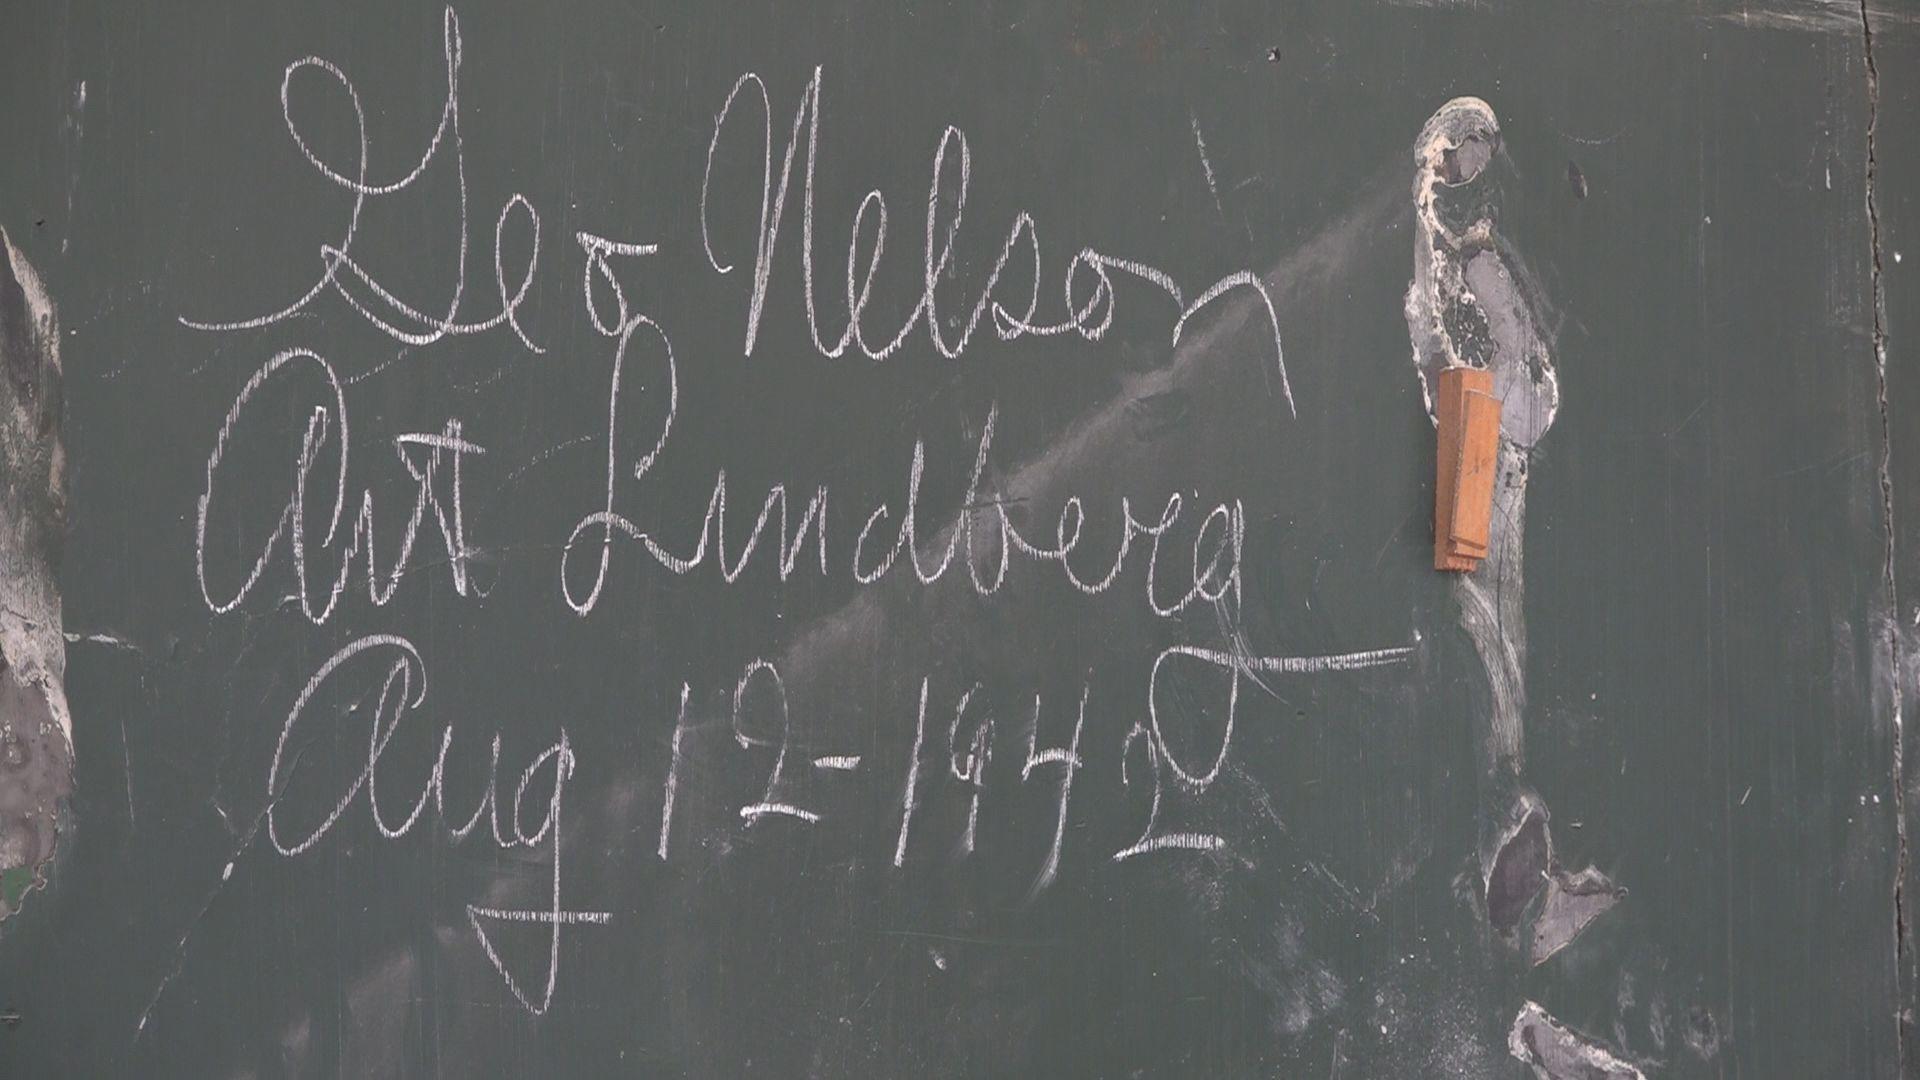 Geo Nelson
Art Lindberg
Aug 12-1942